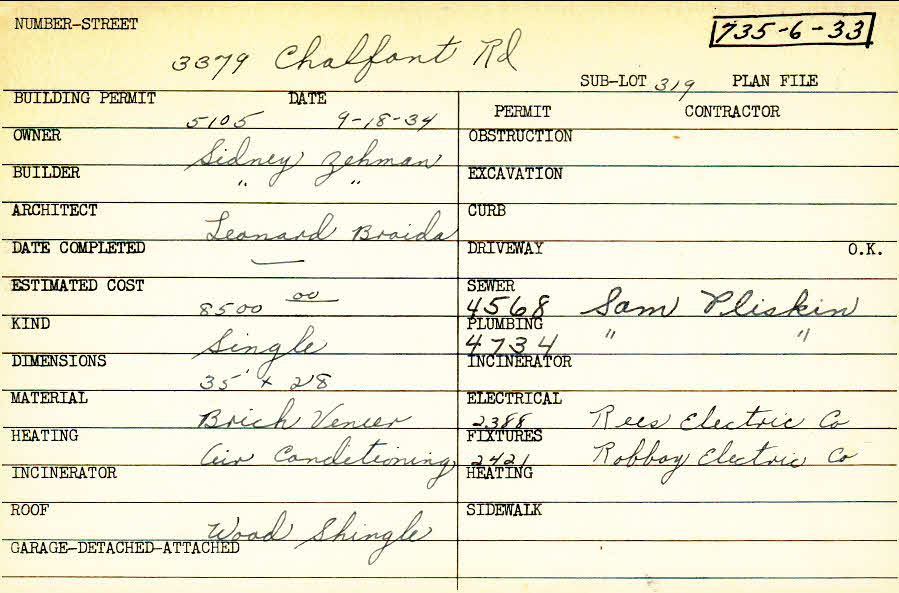 NUMBER-STREET
735-6-33
3379 Chalfant Rd
SUB-LOT 319 PLAN FILE
BUILDING PERMIT DATE
5105 9-18-34
PERMIT CONTRACTOR
OWNER
Sidney Zehman
OBSTRUCTION
BUILDER
" "
EXCAVATION
ARCHITECT
Leonard Braida
CURB
DATE COMPLETED
—
DRIVEWAY O.K.
ESTIMATED COST
8500 00
SEWER
4568 Sam Pliskin
KIND
Single
PLUMBING
4734 " "
DIMENSIONS
35' x 28
INCINERATOR
MATERIAL
Brick Veneer
ELECTRICAL
2388 Rees Electric Co
HEATING
Air Conditioning
FIXTURES
2421 Robboy Electric Co
INCINERATOR
HEATING
ROOF
Wood Shingle
SIDEWALK
GARAGE-DETACHED-ATTACHED